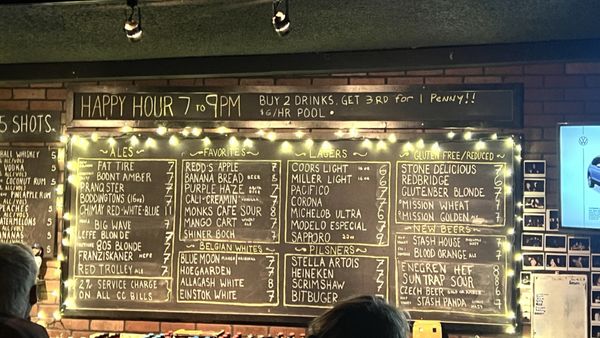 HAPPY HOUR 7 TO 9PM
BUY 2 DRINKS, GET 3RD for 1 PENNY!!
$6/HR POOL
5 SHOTS
5
5
5
5
ALES
FAT TIRE 7
BOONT AMBER 7
PRANQSTER 7
BODDINGTONS (16oz) 7
CHIMAY RED-WHITE-BLUE 11
BIG WAVE 7
LEFFE BLONDE 7
805 BLONDE 7
FRANZISKANER 7
RED TROLLEY ALE 7
2% SERVICE CHARGE
ON ALL CC BILLS
FAVORITES
REDD'S APPLE 7
BANANA BREAD BEER 8
PURPLE HAZE 7
CALI-CREAMIN' 7
MONKS CAFE SOUR 8
MANGO CART 7
SHINER BOCH 7
BELGIAN WHITES
BLUE MOON 7
HOEGAARDEN 7
ALLAGASH WHITE 8
EINSTOK WHITE 7
LAGERS
COORS LIGHT 16oz 6
MILLER LIGHT 16oz 6
PACIFICO 7
CORONA 7
MICHELOB ULTRA 7
MODELO ESPECIAL 7
SAPPORO 9
PILSNERS
STELLA ARTOIS 7
HEINEKEN 7
SCRIMSHAW 7
BITBURGER 7
GLUTEN FREE/REDUCED
STONE DELICIOUS 7
REDBRIDGE 7
GLUTENBER BLONDE 7
MISSION WHEAT 7
MISSION GOLDEN 7
NEW BEERS
STASH HOUSE 7
BLOOD ORANGE 7
ENEGREN HEF 8
SUN TRAP SOUR 8
CZECH BEER 6
STASH PANDA 7